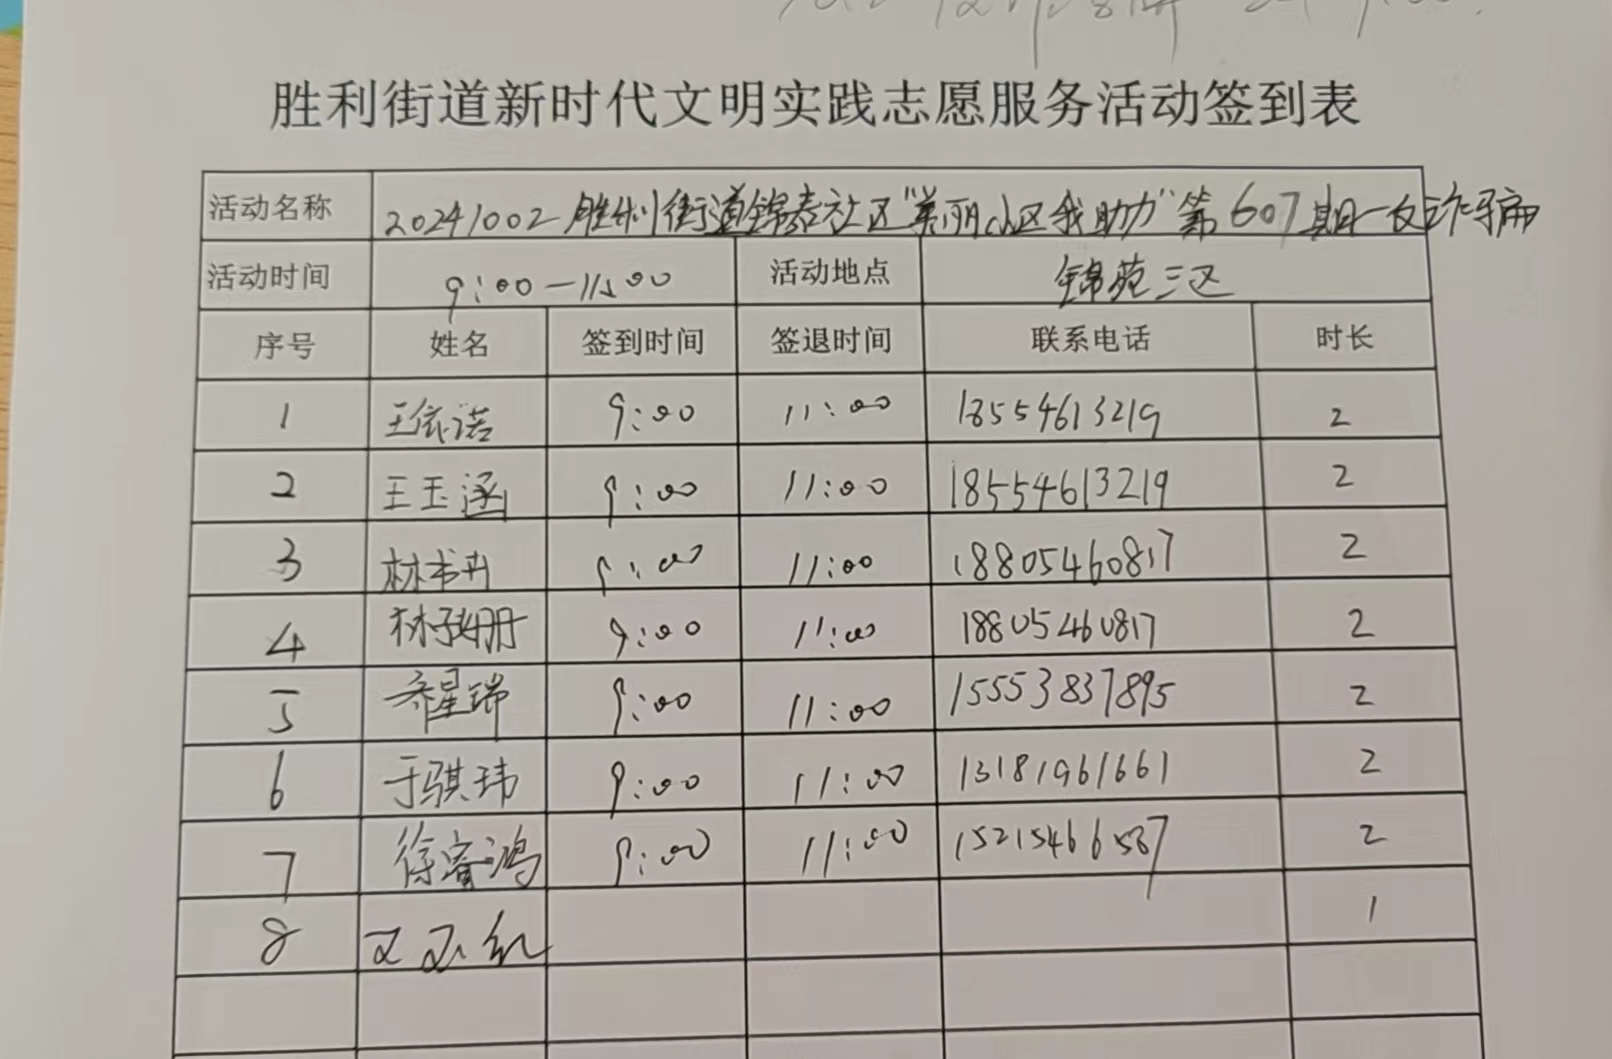 胜利街道新时代文明实践志愿服务活动签到表
活动名称 20241002胜利街道锦泰社区"美丽小区我助力"第607期—反诈骗
活动时间 9:00—11:00 活动地点 锦苑三区
序号 姓名 签到时间 签退时间 联系电话 时长
1 王依诺 9:00 11:00 18554613219 2
2 王玉涵 9:00 11:00 18554613219 2
3 林书丹 9:00 11:00 18805460817 2
4 林子姗 9:00 11:00 18805460817 2
5 齐星瑞 9:00 11:00 15553837895 2
6 于骐玮 9:00 11:00 13181961661 2
7 徐睿鸿 9:00 11:00 15215466587 2
8 王玉红 1